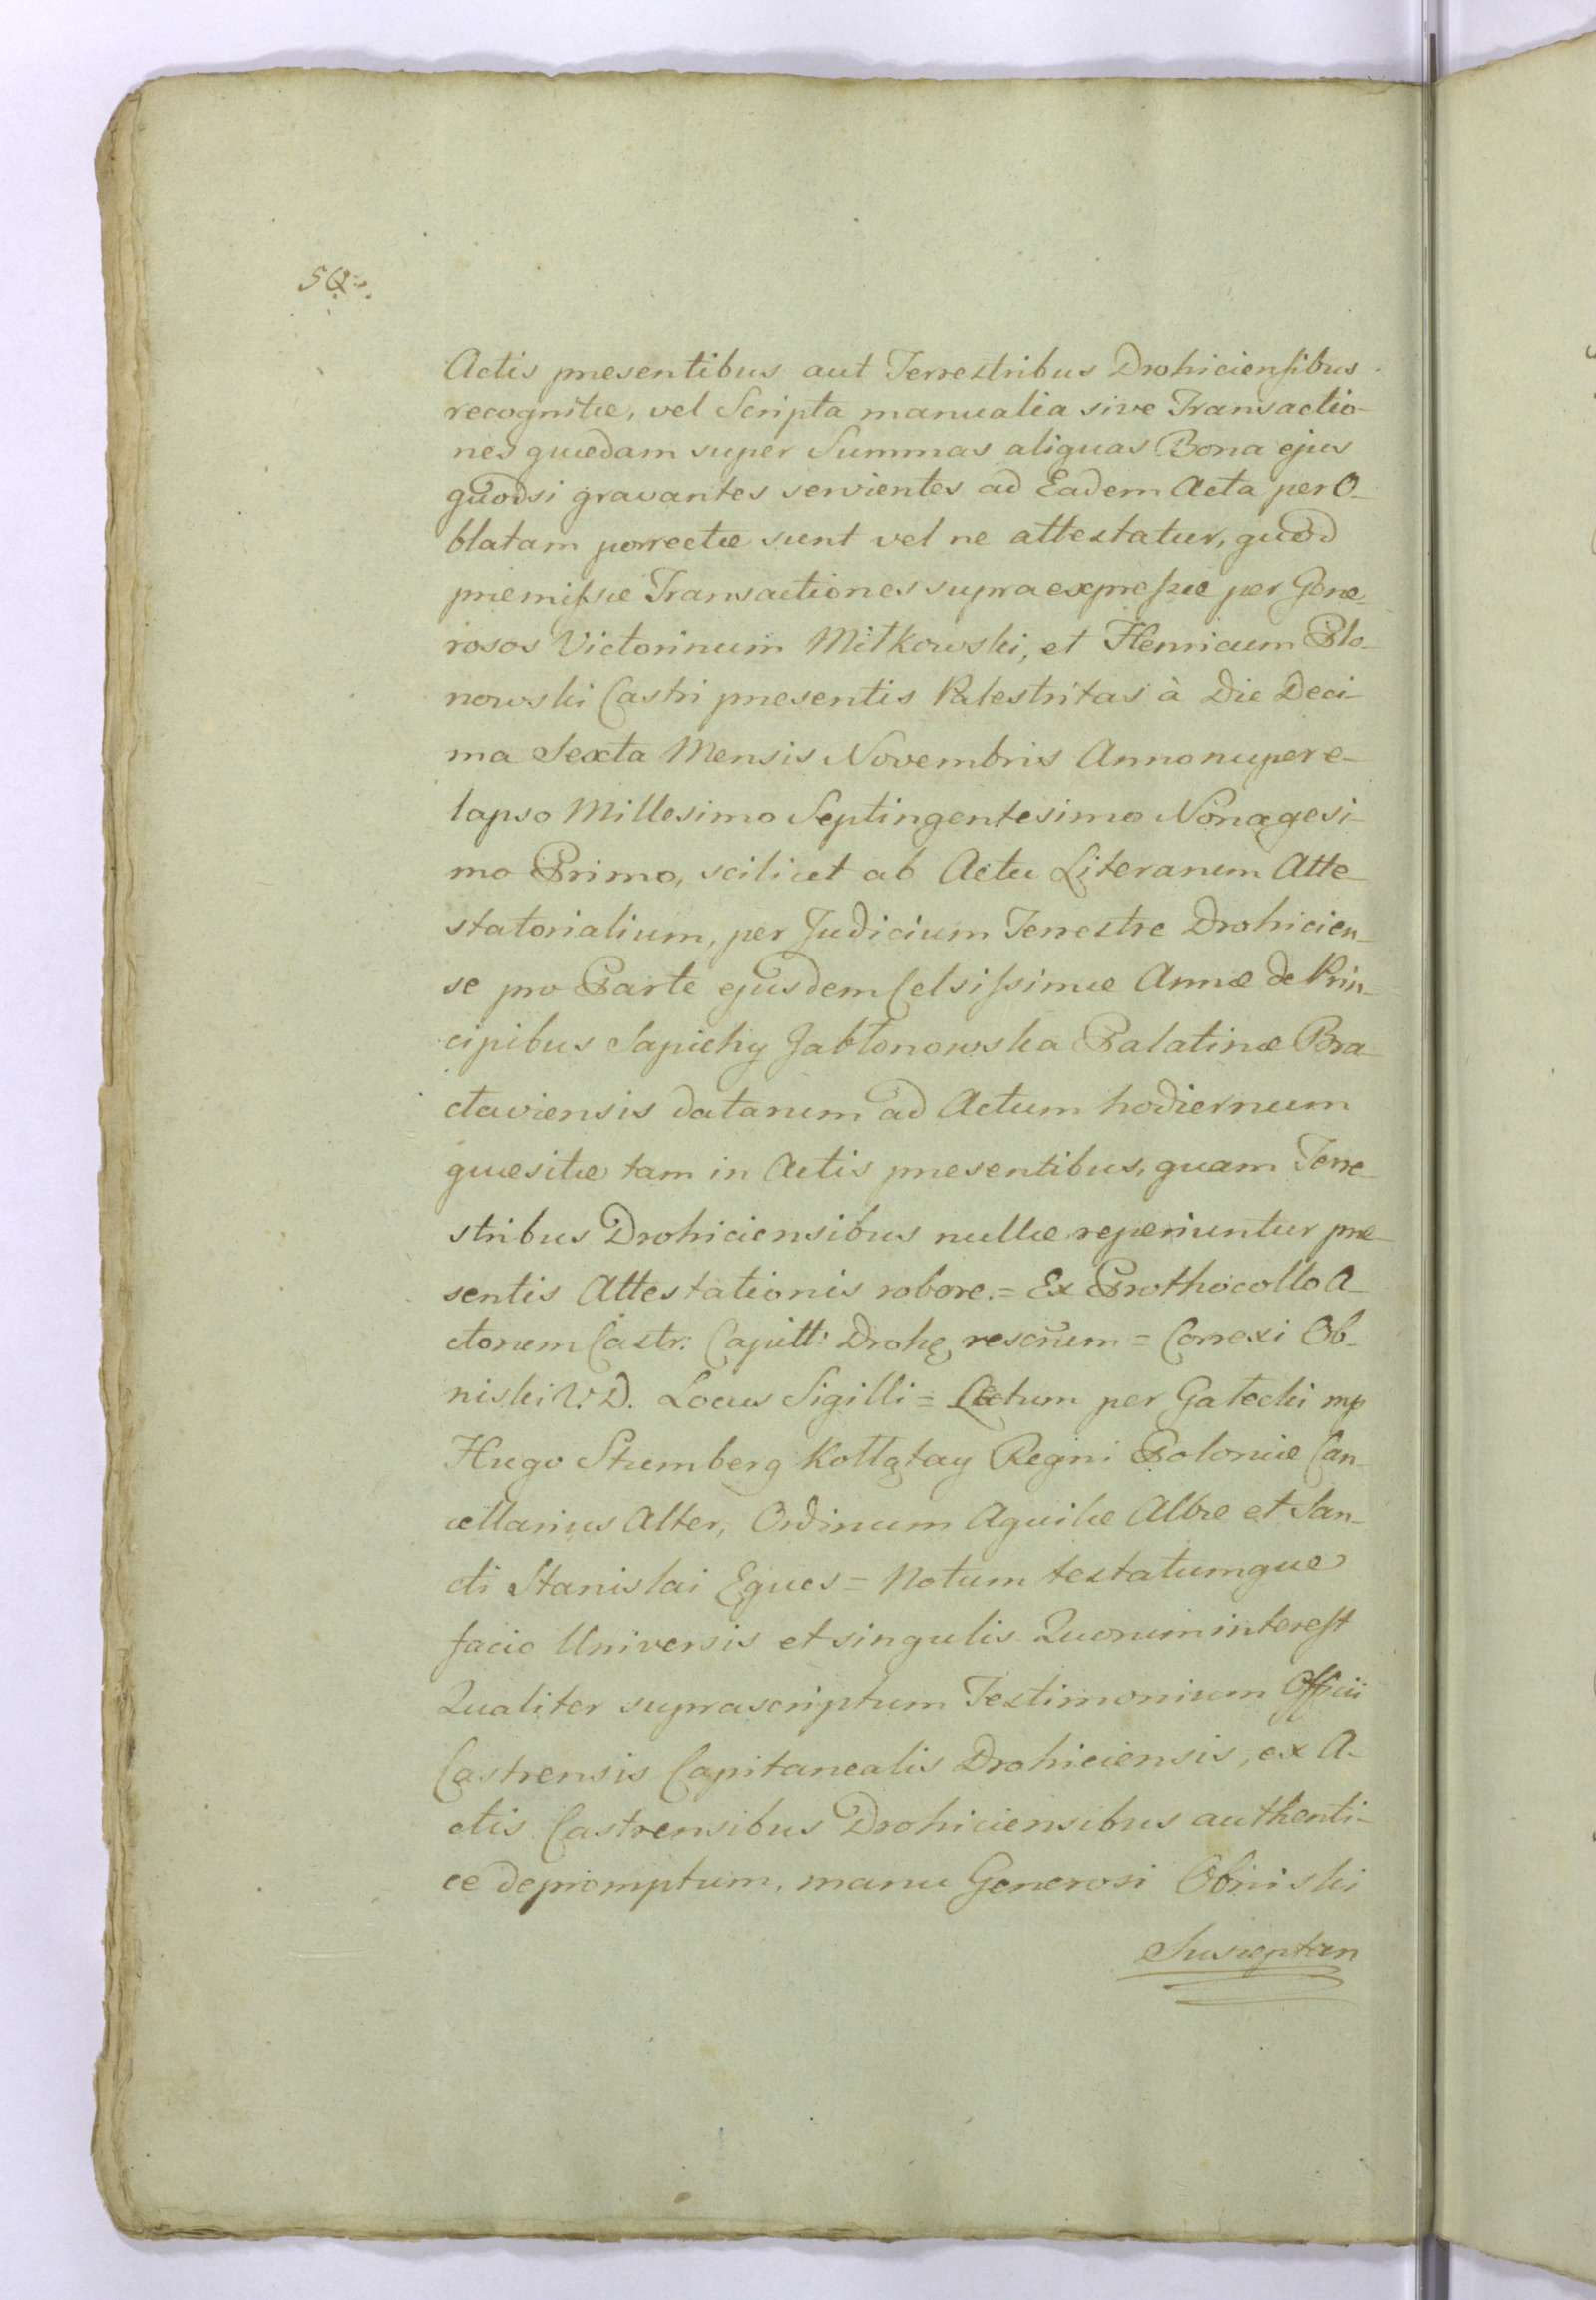 Actis præsentibus aut Terrestribus Drohiciensibus
recognitæ, vel Scripta manualia sive Transactio-
nes quædam super Summas aliquas Bona ejus
quodsi gravantes servientes ad Eadem Acta per O-
blatam porrectæ sunt vel ne attestatur, quod
præmissæ Transactiones supra expressæ per Gene-
rosos Victorinum Mitkowski, et Henricum Plo-
nowski Castri præsentis Palestritas à Die Deci-
ma Sexta Mensis Novembris Anno nuper e-
lapso Millesimo Septingentesimo Nonagesi-
mo Primo, scilicet ab Actu Literarum Atte-
statorialium, per Judicium Terrestre Drohicien-
se pro Parte ejusdem Celsissimæ Annæ de Prin-
cipibus Sapiehy Jabłonowska Palatinæ Bra-
claviensis datarum ad Actum hodiernum
quæsitæ tam in Actis præsentibus, quam Terre-
stribus Drohiciensibus nullæ reperiuntur præ-
sentis Attestationis robore. = Ex Prothocollo A-
ctorum Castr: Capitt: Drohę rescrum = Correxi Ob-
niski V. D. Locus Sigilli = Lectum per Gałecki mp
Hugo Stumberg Kołłątay Regni Poloniæ Can-
cellarius Alter, Ordinum Aquilæ Albæ et San-
cti Stanislai Eques = Notum testatumque
facio Universis et singulis Quorum interest
Qualiter suprascriptum Testimonium Officii
Castrensis Capitanealis Drohiciensis, ex A-
ctis Castrensibus Drohiciensibus authenti-
ce depromptum, manu Generosi Obniski
Susceptan